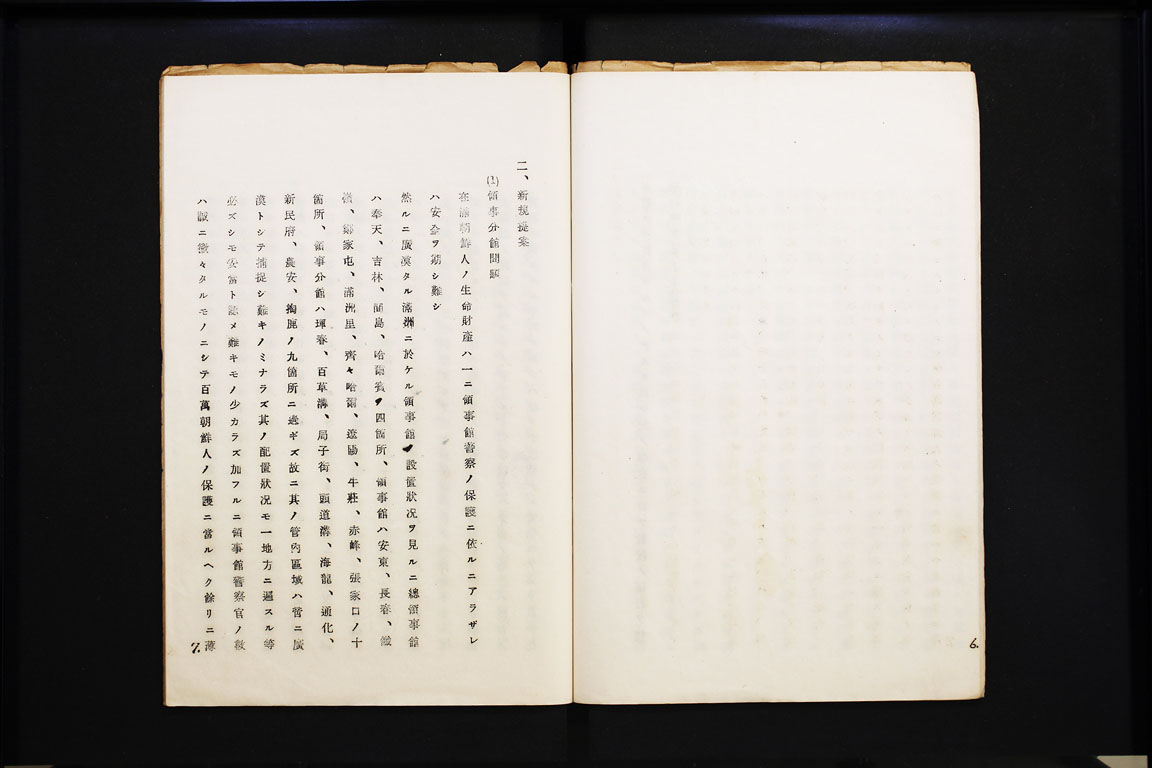 二、新規提案
(1)領事分館問題
在滿朝鮮人ノ生命財產ハ一ニ領事館警察ノ保護ニ依ルニアラザレ
ハ安全ヲ期シ難シ
然ルニ廣漠タル滿洲ニ於ケル領事館ノ設置狀況ヲ見ルニ總領事館
ハ奉天、吉林、間島、哈爾賓ノ四箇所、領事館ハ安東、長春、鐵
嶺、鄭家屯、滿洲里、齊々哈爾、遼陽、牛莊、赤峰、張家口ノ十
箇所、領事分館ハ琿春、百草溝、局子街、頭道溝、海龍、通化、
新民府、農安、掏鹿ノ九箇所ニ過ギズ故ニ其ノ管內區域ハ啻ニ廣
漠トシテ捕捉シ難キノミナラズ其ノ配置狀況モ一地方ニ遍スル等
必ズシモ妥當ト認メ難キモノ少カラズ加フルニ領事館警察官ノ數
ハ誠ニ微々タルモノニシテ百萬朝鮮人ノ保護ニ當ルヘク餘リニ薄
7.
6.